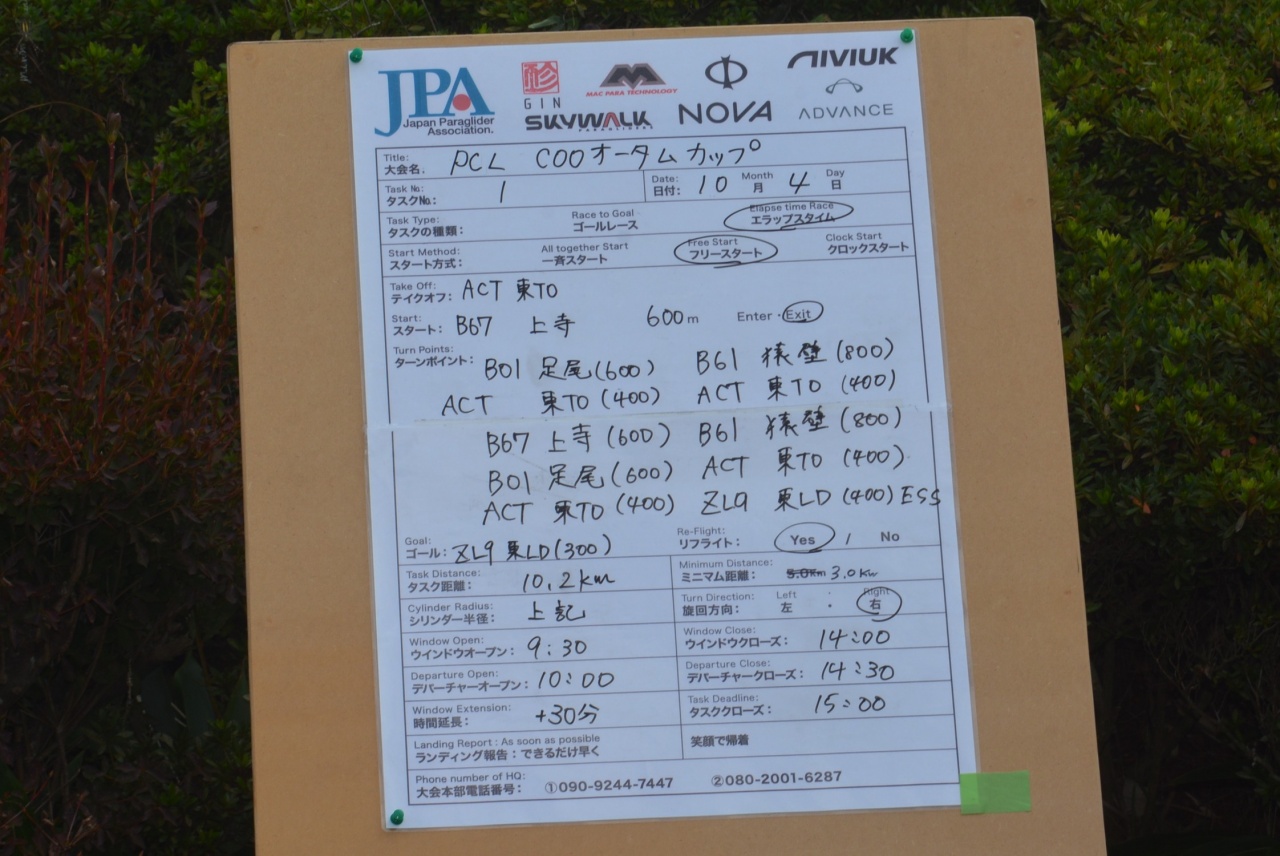 JPA
Japan Paraglider
Association.
GIN
MAC PARA TECHNOLOGY
NIVIUK
SKYWALK
PARAGLIDERS
NOVA
ADVANCE
Title:
大会名. PCL COOオータムカップ
Task No: Date: Month Day
タスクNo.: 1 日付: 10 月 4 日
Task Type: Race to Goal Elapse time Race
タスクの種類: ゴールレース エラップスタイム
Start Method: All together Start Free Start Clock Start
スタート方式: 一斉スタート フリースタート クロックスタート
Take Off:
テイクオフ: ACT 東TO
Start:
スタート: B67 上寺 600m Enter・Exit
Turn Points:
ターンポイント: B01 足尾(600) B61 猿壁(800)
ACT 東TO(400) ACT 東TO(400)
B67 上寺(600) B61 猿壁(800)
B01 足尾(600) ACT 東TO(400)
ACT 東TO(400) ZL9 東LD(400)ESS
Goal: Re-Flight:
ゴール: ZL9 東LD(300) リフライト: Yes / No
Task Distance: Minimum Distance:
タスク距離: 10.2km ミニマム距離: 5.0Km 3.0Km
Cylinder Radius: Turn Direction: Left Right
シリンダー半径: 上記 旋回方向: 左 ・ 右
Window Open: Window Close:
ウインドウオープン: 9:30 ウインドウクローズ: 14:00
Departure Open: Departure Close:
デパーチャーオープン: 10:00 デパーチャークローズ: 14:30
Window Extension: Task Deadline:
時間延長: +30分 タスククローズ: 15:00
Landing Report : As soon as possible
ランディング報告:できるだけ早く 笑顔で帰着
Phone number of HQ:
大会本部電話番号: ①090-9244-7447 ②080-2001-6287